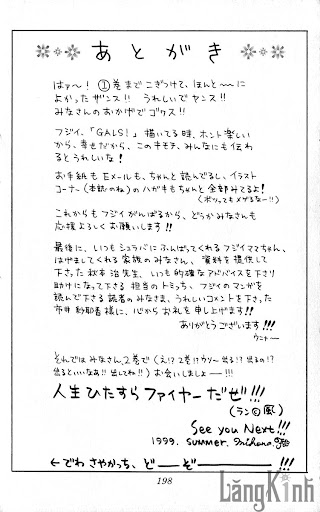 あとがき
はァ〜! ①巻までこぎつけて、ほんと〜に
よかったザンス!! うれしいでヤンス!!
みなさんのおかげでゴワス!!
フジイ、「GALS!」描いてる時、ホント楽しい
から、幸せだから、このキモチ、みんなにも伝わ
るとうれしいな!
お手紙も Eメールも、ちゃんと読んでるし、イラスト
コーナー(本誌のね)のハガキもちゃんと全部みてるよ!
(ボツってもメゲるなー!!)
これからもフジイがんばるから、どうかみなさんも
応援よろしくお願いします!!
最後に、いつもシュラバにふんばってくれるフジイママちゃん、
はげましてくれる家族のみなさん、資料を提供して
下さった秋本治先生、いつも的確なアドバイスを下さり
助けになって下さる担当のトミっち、フジイのマンガを
読んで下さる読者のみなさま、うれしいコメントを下さった
市井紗耶香様に、心からお礼を申し上げます!!
ありがとうございます!!!
それではみなさん、2巻で(え!?2巻!?
出るといいなあ!! 出してね!!) お会いしましょー!!!
人生ひたすらファイヤーだぜ!!!
(ラン©風)
See you Next!!!
1999. summer. Mihona
←でわ さやかっち、どーぞー !!!
198
LăngKính